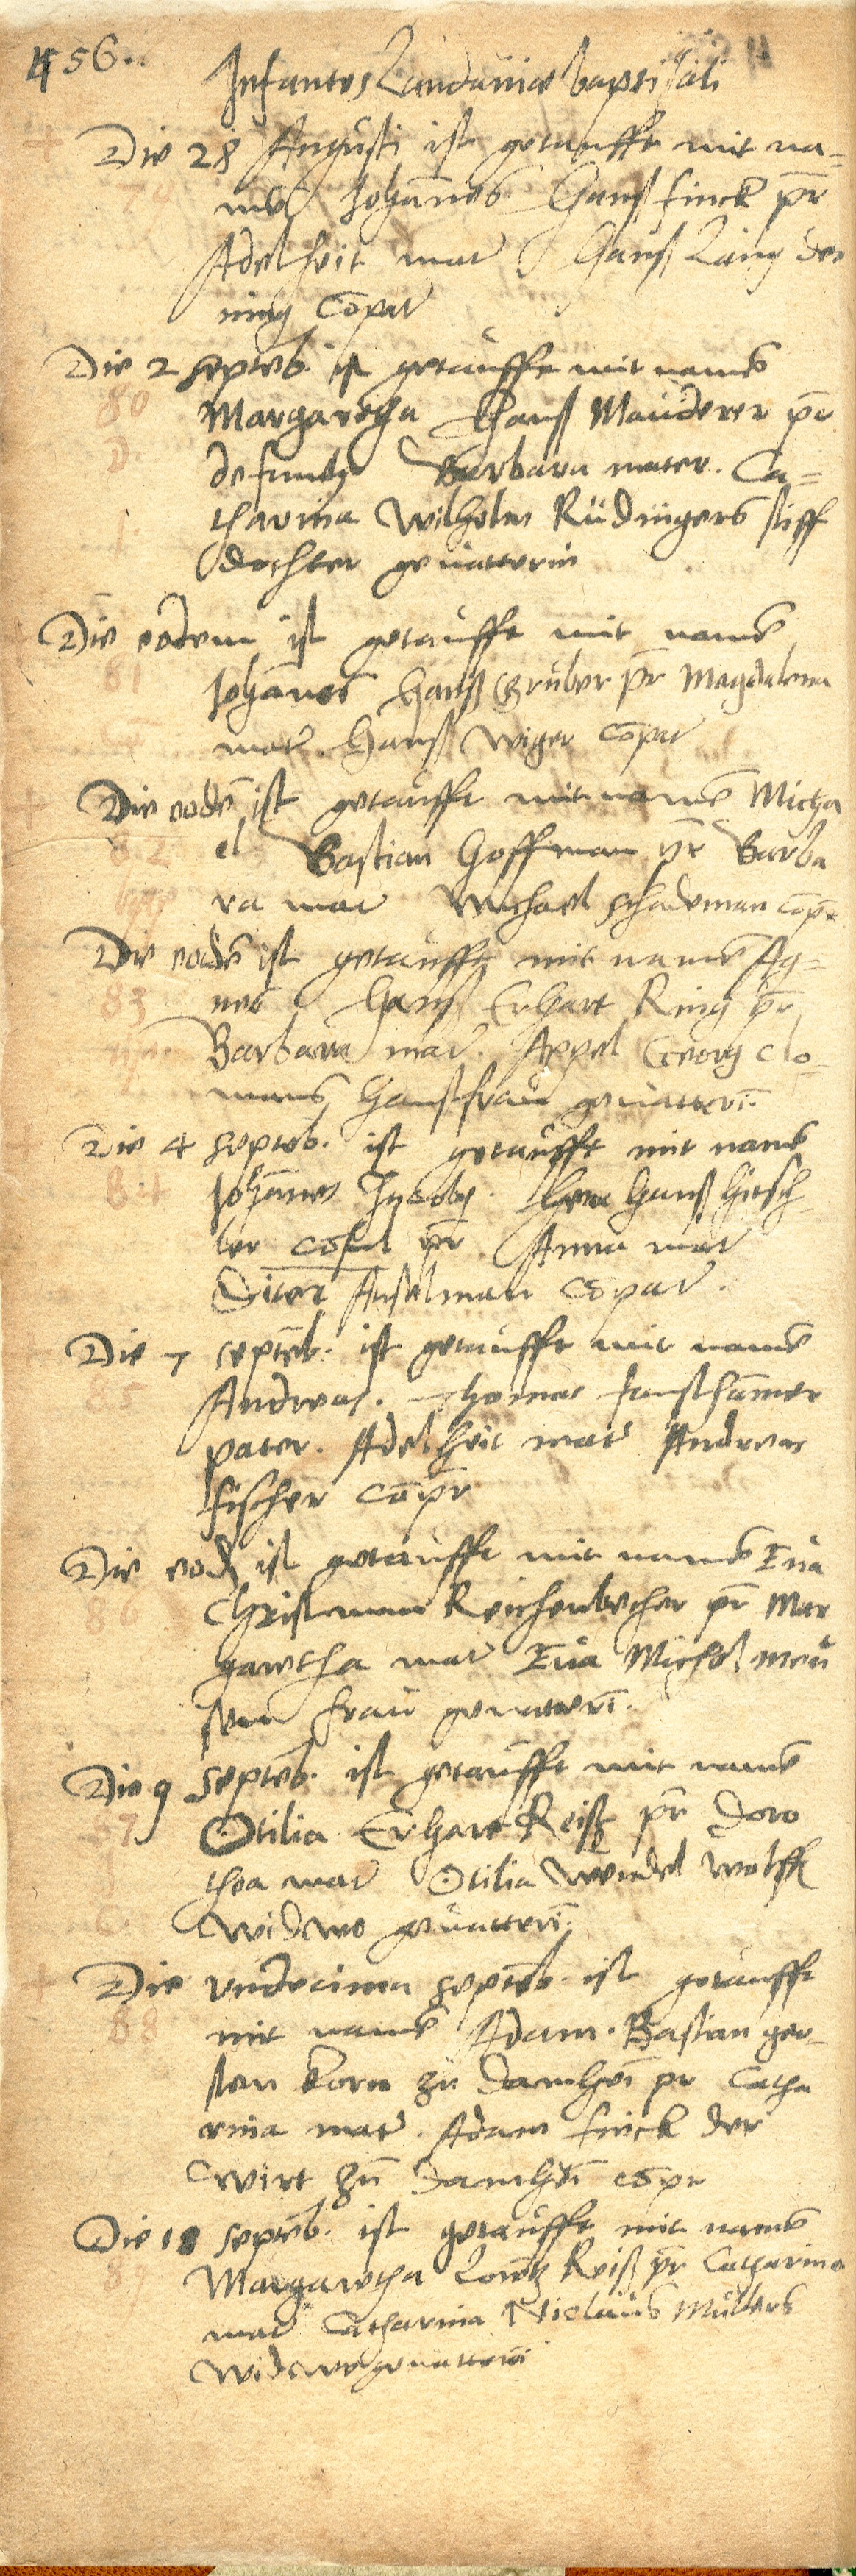 456.
Infantes Landauiae baptisati
Die 28 Augusti ist getaufft mit na=
mē Johānes Hanß Finck pr̄
Adelheit mat̄ Hanß Lang
Cōpat̄
Die 2 septēb. ist getaufft mit namē
80
Margaretha Hanß Mauderer pr̄
defunct9 Barbara mater. Ca=
tharina Wilhelm Rüdingers stiff
dochter geuatterin
Die eodem ist getaufft mit namē
81
Johānes Hanß Gruber pr̄ Magdalena
mat̄. Hanß Wiger Cōpat̄
Die eodē ist getaufft mit namē Micha
82
el Bastian Hoffman pr̄ Barba
ra mat̄ Michael Schademan cōpr̄
Die eodē ist getaufft mit namē Ag=
83
nes Hanß Erhart Ring pr̄
Barbara mat̄. Appel Georg Clo-
mans Haußfrau geuatterī.
Die 4 septēb. ist getaufft mit namē
84
Johānes Jacoby. Herr Hanß Hitsch-
ler cōsul pr̄ Anna mat̄
Diter Anselman Cōpat̄.
Die 7 septēb. ist getaufft mit namē
Andreas. Thomas Fausthamer
pater. Adelheit mat̄ Andreas
Fischer Cōpr̄
Die eod ist getaufft mit namē Eua
86
Christman Reichenbecher pr̄ Mar
garetha mat̄ Eua Michel meu
frau geuatterī.
Die 9 Septēb. ist getaufft mit namē
87
Otilia Erhart Reiß pr̄ Doro
thea mat̄ Otilia Wendel Wolff
Widwe geuatterī.
Die vndecima septēb. ist getaufft
88
mit namē Adam. Bastian ger-
sten korn zu Damheī pr Catha
rina mat̄. Adam Finck der
wirt zu Damheī cōpr
Die 18 septēb. ist getaufft mit namē
Margaretha Lorētz Reiß pr̄ Catharina
mat̄ Catharina Niclaus Müllers
Widwe geuatterī